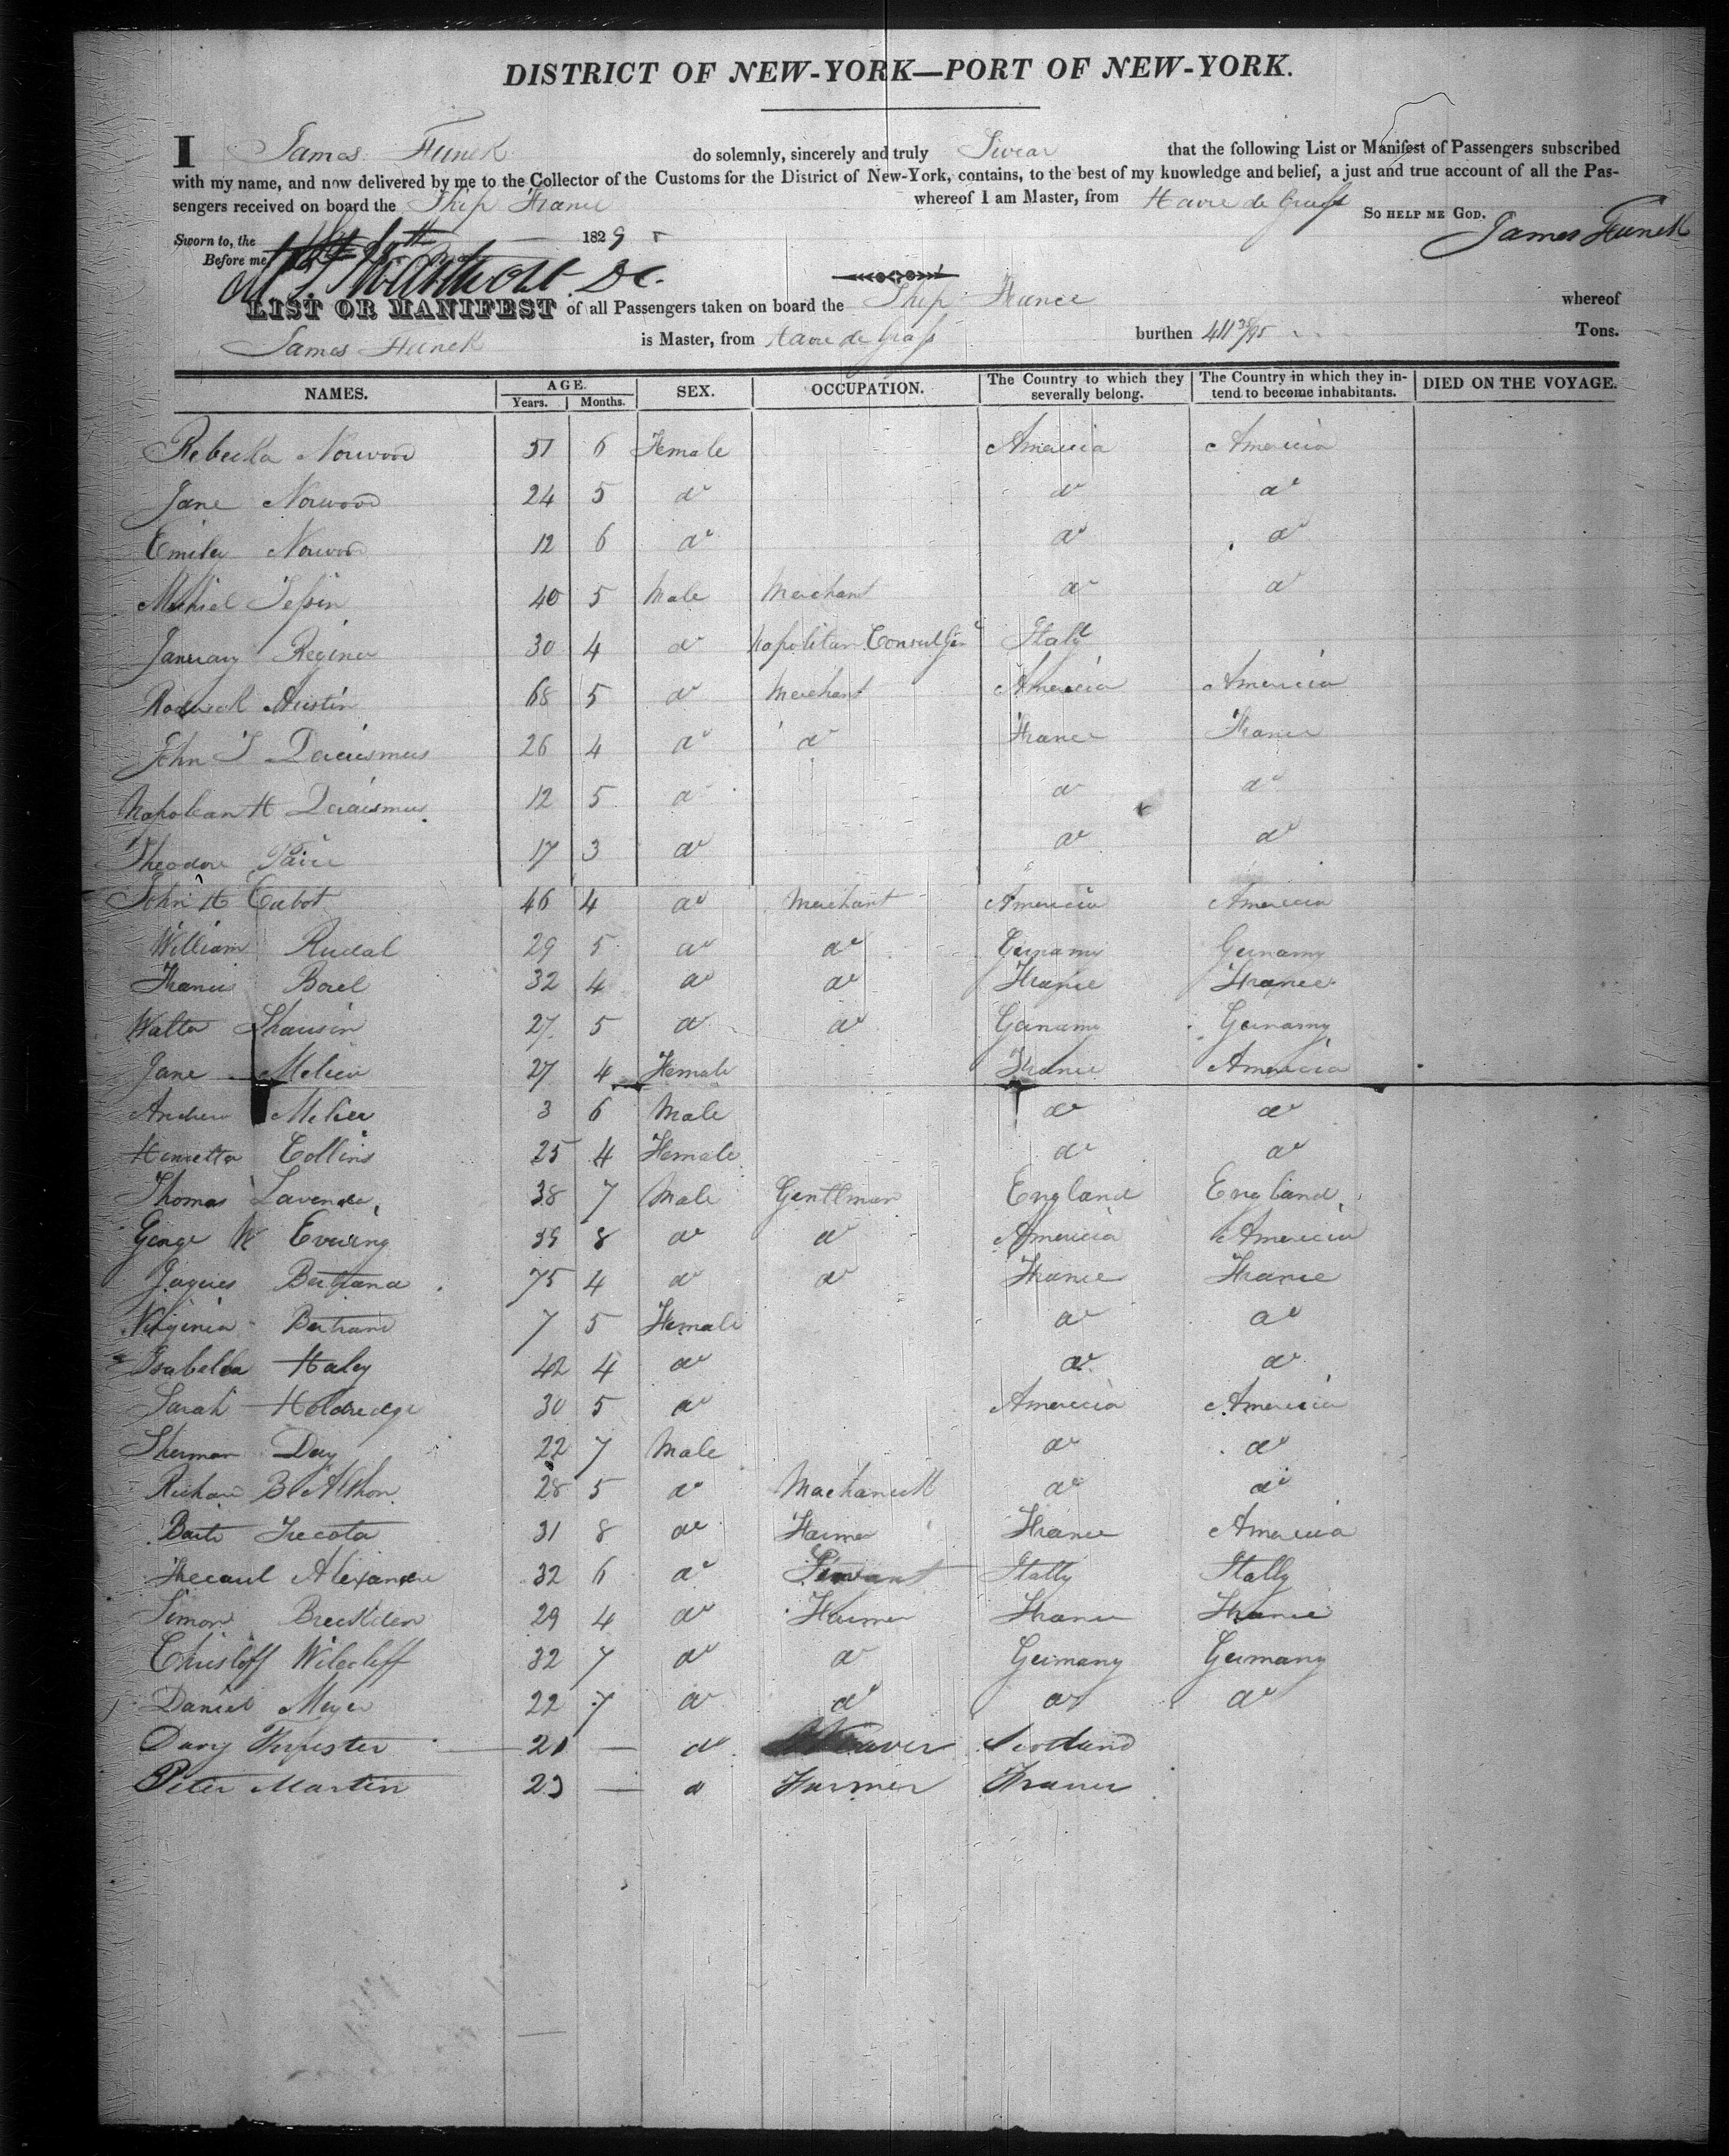 DISTRICT OF NEW-YORK—PORT OF NEW-YORK.
I James Funck do solemnly, sincerely and truly Swear that the following List or Manifest of Passengers subscribed
with my name, and now delivered by me to the Collector of the Customs for the District of New-York, contains, to the best of my knowledge and belief, a just and true account of all the Pas-
sengers received on board the Ship France whereof I am Master, from Havre de Grass
So help me God.
Sworn to, the 1829 James Funck
Before me,
LIST OR MANIFEST of all Passengers taken on board the Ship France whereof
James Funck is Master, from Havre de Grass burthen 411 35/95 Tons.
NAMES. AGE. Years. Months. SEX. OCCUPATION. The Country to which they severally belong. The Country in which they intend to become inhabitants. DIED ON THE VOYAGE.
Rebecka Norwood 51 6 Female America America
Jane Norwood 24 5 do do do
Emiley Norwood 12 6 do do do
40 5 Male Merchant do do
January 30 4 do Napolitan Consul Gen Italy
Austin 68 5 do Merchant America America
John 26 4 do do France France
Napolean H 12 5 do do do
Theodore Pavie 17 3 do do do
John H Cabot 46 4 do Merchant America America
William 29 5 do do Germany Germany
Francis Borel 32 4 do do France France
Walter 27 5 do do Germany Germany
Jane 27 4 Female France America
Andrew 3 6 Male do do
Henrietta Collins 25 4 Female do do
Thomas Lavender 38 7 Male Gentlman England England
George W Evering 39 8 do do America America
Jaques Bertrand 75 4 do do France France
Virginia Bertrand 7 5 Female do do
Isabella Haley 42 4 do do do
Sarah Holdredge 30 5 do America America
Sherman Day 22 7 Male do do
Richard B 28 5 do Machanick do do
31 8 do Farmer France America
Alexandre 32 6 do Servant Itally Itally
Simon 29 4 do Farmer France France
32 7 do do Germany Germany
Daniel Meyer 22 7 do do do do
21 — do Weaver Scotland
Peter Martin 23 — do Farmer France